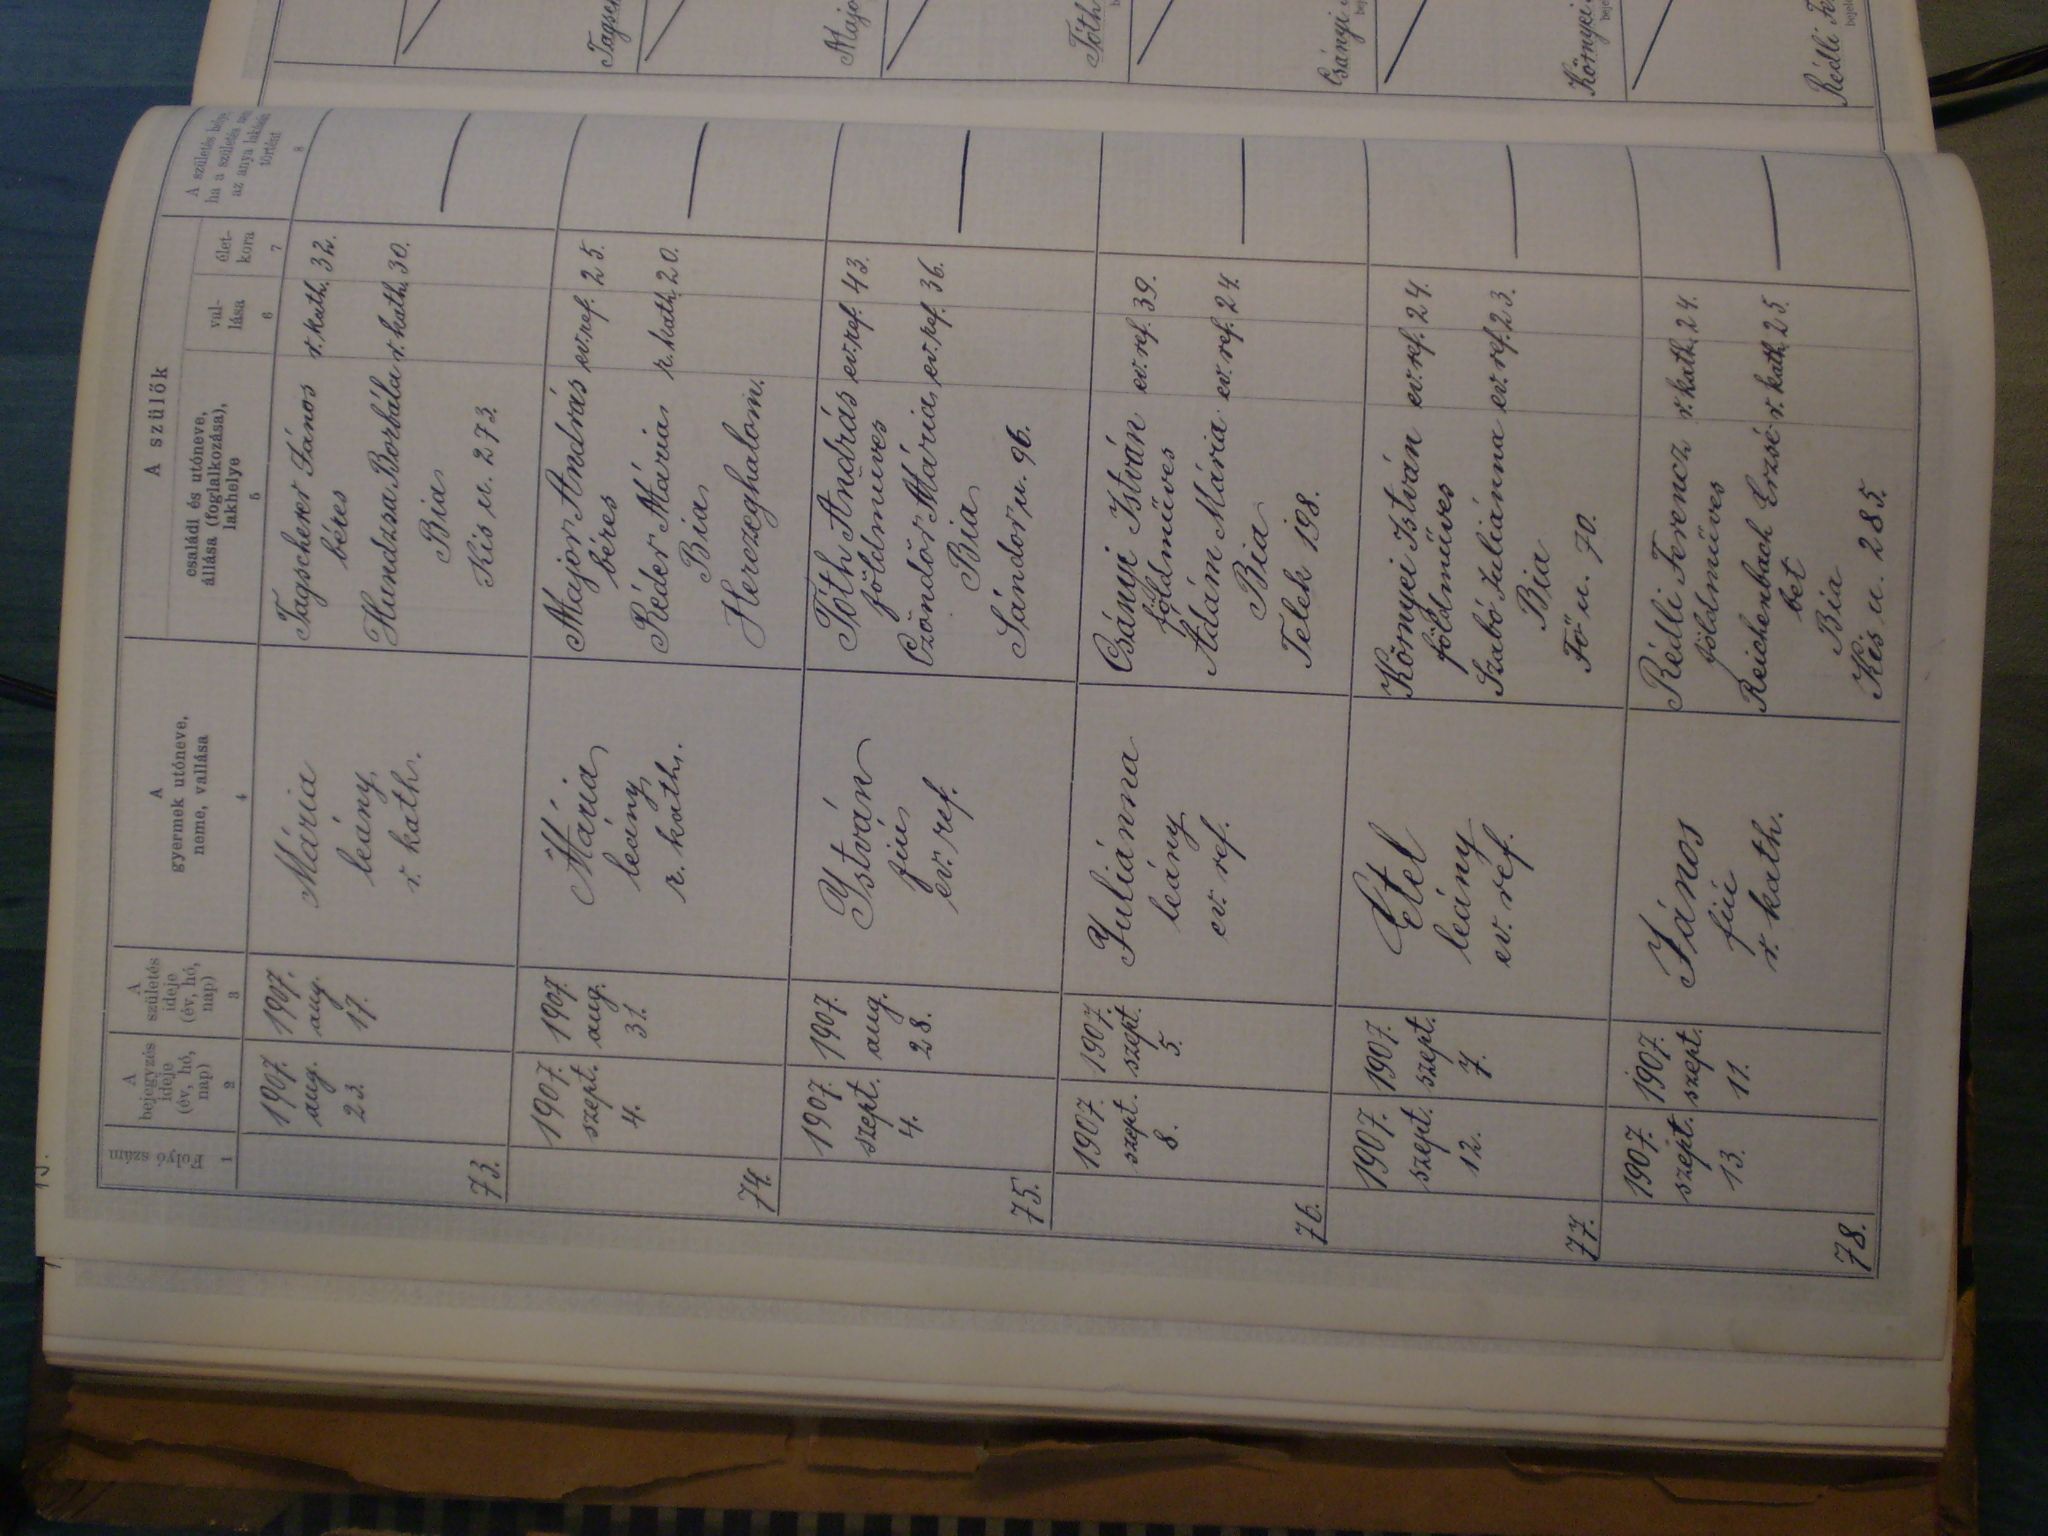 A szülők
Folyó szám
A bejegyzés ideje (év, hó, nap)
A születés ideje (év, hó, nap)
A gyermek utóneve, neme, vallása
családi és utóneve, állása (foglalkozása), lakhelye
vallása
életkora
A születés helye ha a születés az anya lakásán történt
1 2 3 4 5 6 7 8
73.
1907. aug. 23.
1907. aug. 17.
Mária
leány,
r. kath.
Tagscherer János r. kath. 32.
béres
Hundzsa Borbála r. kath. 30.
Bia
Kis u. 273.
74.
1907. szept. 4.
1907 aug. 31.
Mária
leány,
r. kath.
Major András ev. ref. 25.
béres
Réder Mária r. kath 20.
Bia
Herczeghalom.
75.
1907. szept. 4.
1907. aug. 28.
István
fiú
ev. ref.
Tóth András ev. ref. 43.
földmüves
Czöndör Mária ev. ref. 36.
Bia
Sándor u. 96.
76.
1907. szept. 8.
1907. szept. 5.
Juliánna
leány
ev. ref.
Csányi István ev. ref. 39.
földműves
Ádám Mária ev. ref. 24.
Bia
Telek 198.
77.
1907. szept. 12.
1907. szept. 7.
Etel
leány
ev. ref.
Környei István ev. ref. 24.
földműves
Szabó Juliánna ev. ref. 23.
Bia
Fő u. 70.
78.
1907. szept. 13.
1907. szept. 11.
János
fiú
r. kath.
Rédli Ferencz r. kath. 24.
földműves
Reichenbach Erzsé r. kath. 25.
bet
Bia
Kis u. 285.
Tóth
Csányi
Környei
Rédli